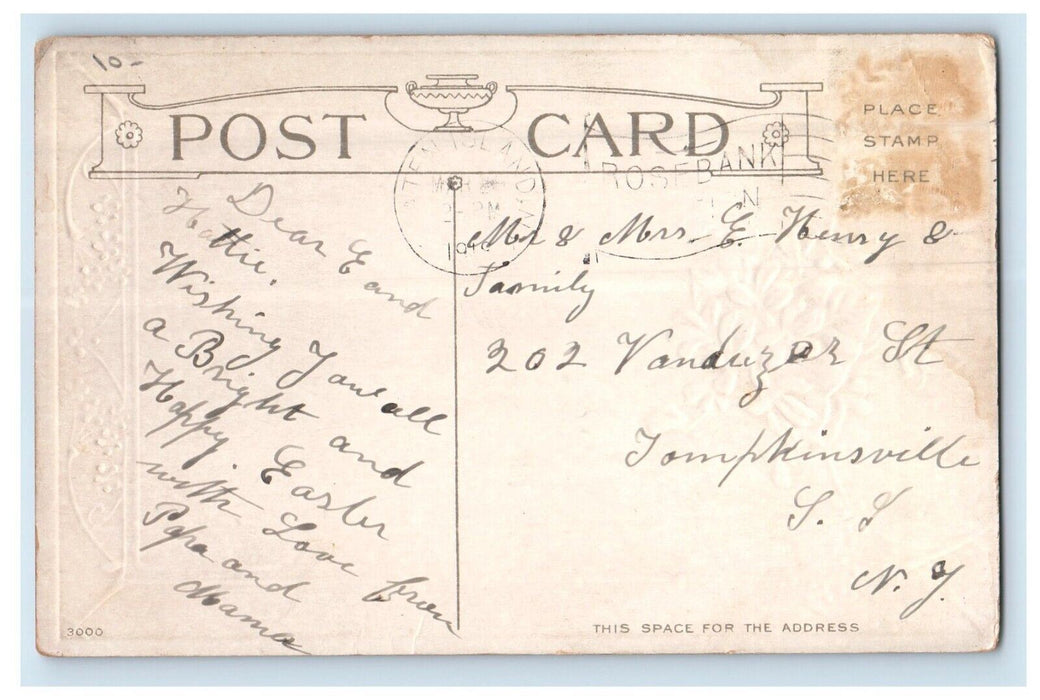 10-
POST CARD
PLACE
STAMP
HERE
STATEN ISLAND
2- PM
ROSEBANK
Dear E and
Hattie.
Wishing You all
a Bright and
Happy. Easter
with Love from
Papa and
Mama
Mr & Mrs. E. Henry &
Family
202 Vanduzer St
Tompkinsville
S. I
N. Y.
3000
THIS SPACE FOR THE ADDRESS